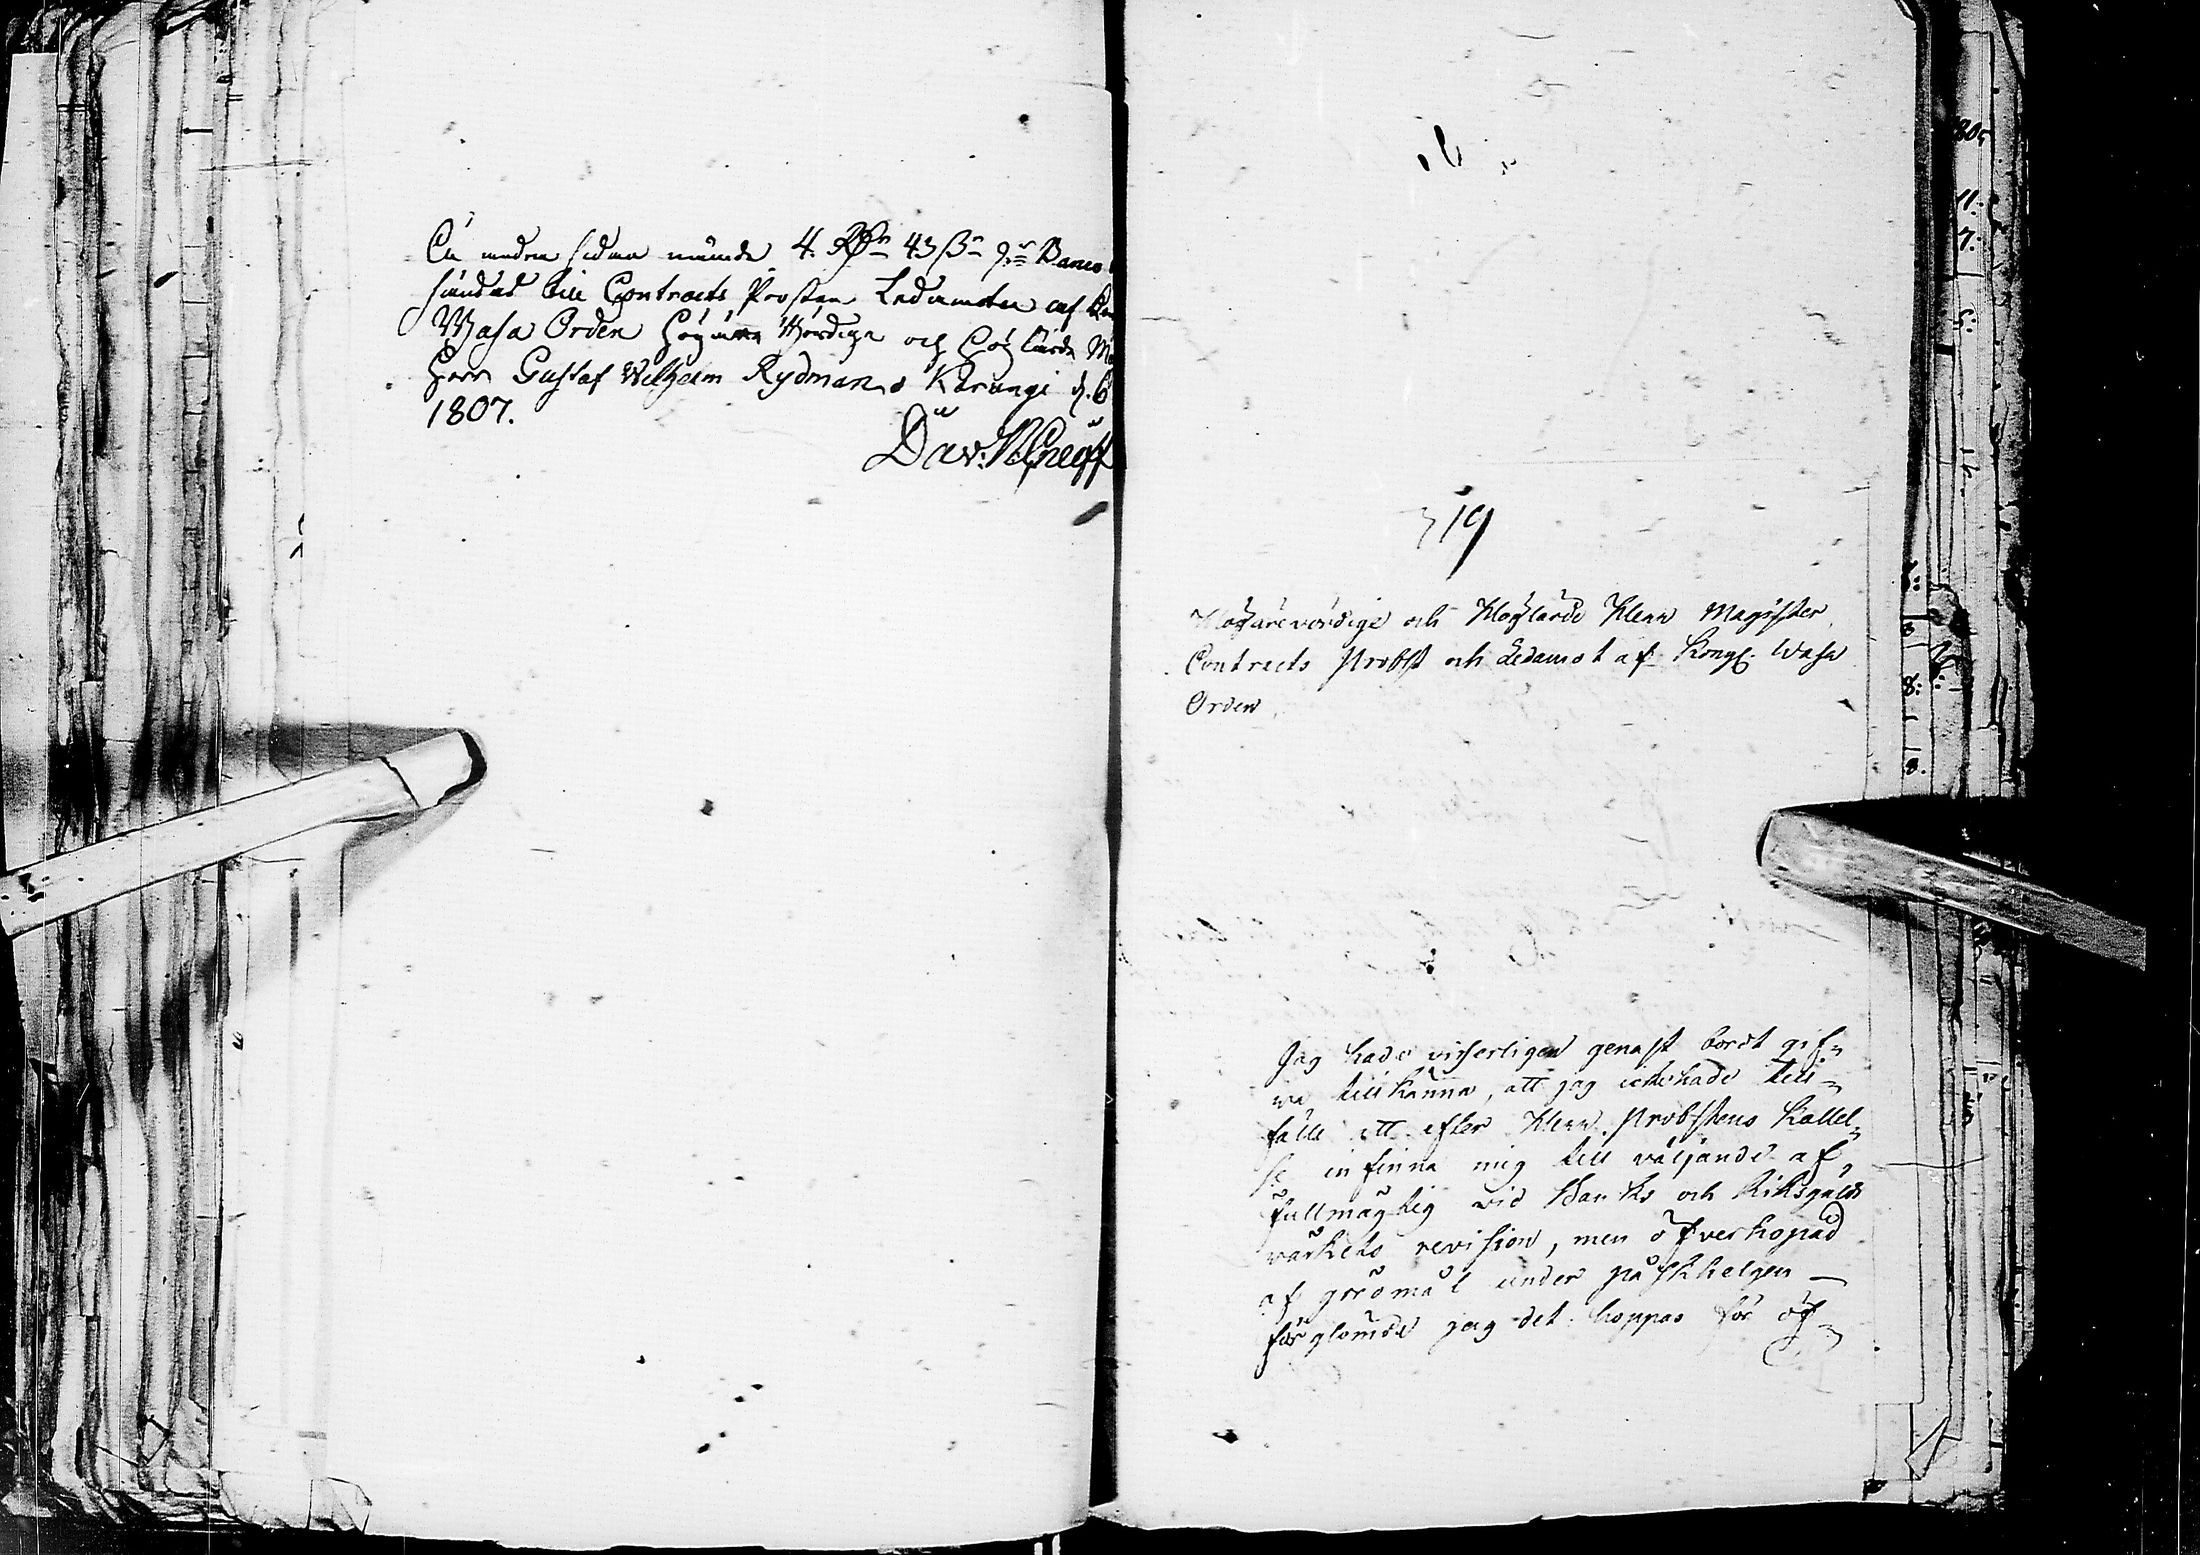 På andra sidan nämde 4. Rd 43 ß 9 rs Banco
sändas till Contracts Prosten Ledamoten af
Wasa Orden Högärevördige och Höglärde
Herr Gustaf Wilhelm Rydman, Karungi d. 6
1807.
Dav:
319
Högärevördige och Höglärde Herr Magister,
Contracts Probst och Ledamot af Kongl. Wasa
Orden
Jag hade visserligen genast bordt gif=
va tillkänna, att jag icke hade till=
fälle att efter Herr Probstens Kallel=
se infinna mig till väljande af
fullmägtig vid Banks och Riksgälds
värkets revision, men öfverhopad
af göromål under påskhelgen —
förglömde jag det. hoppas för öf=